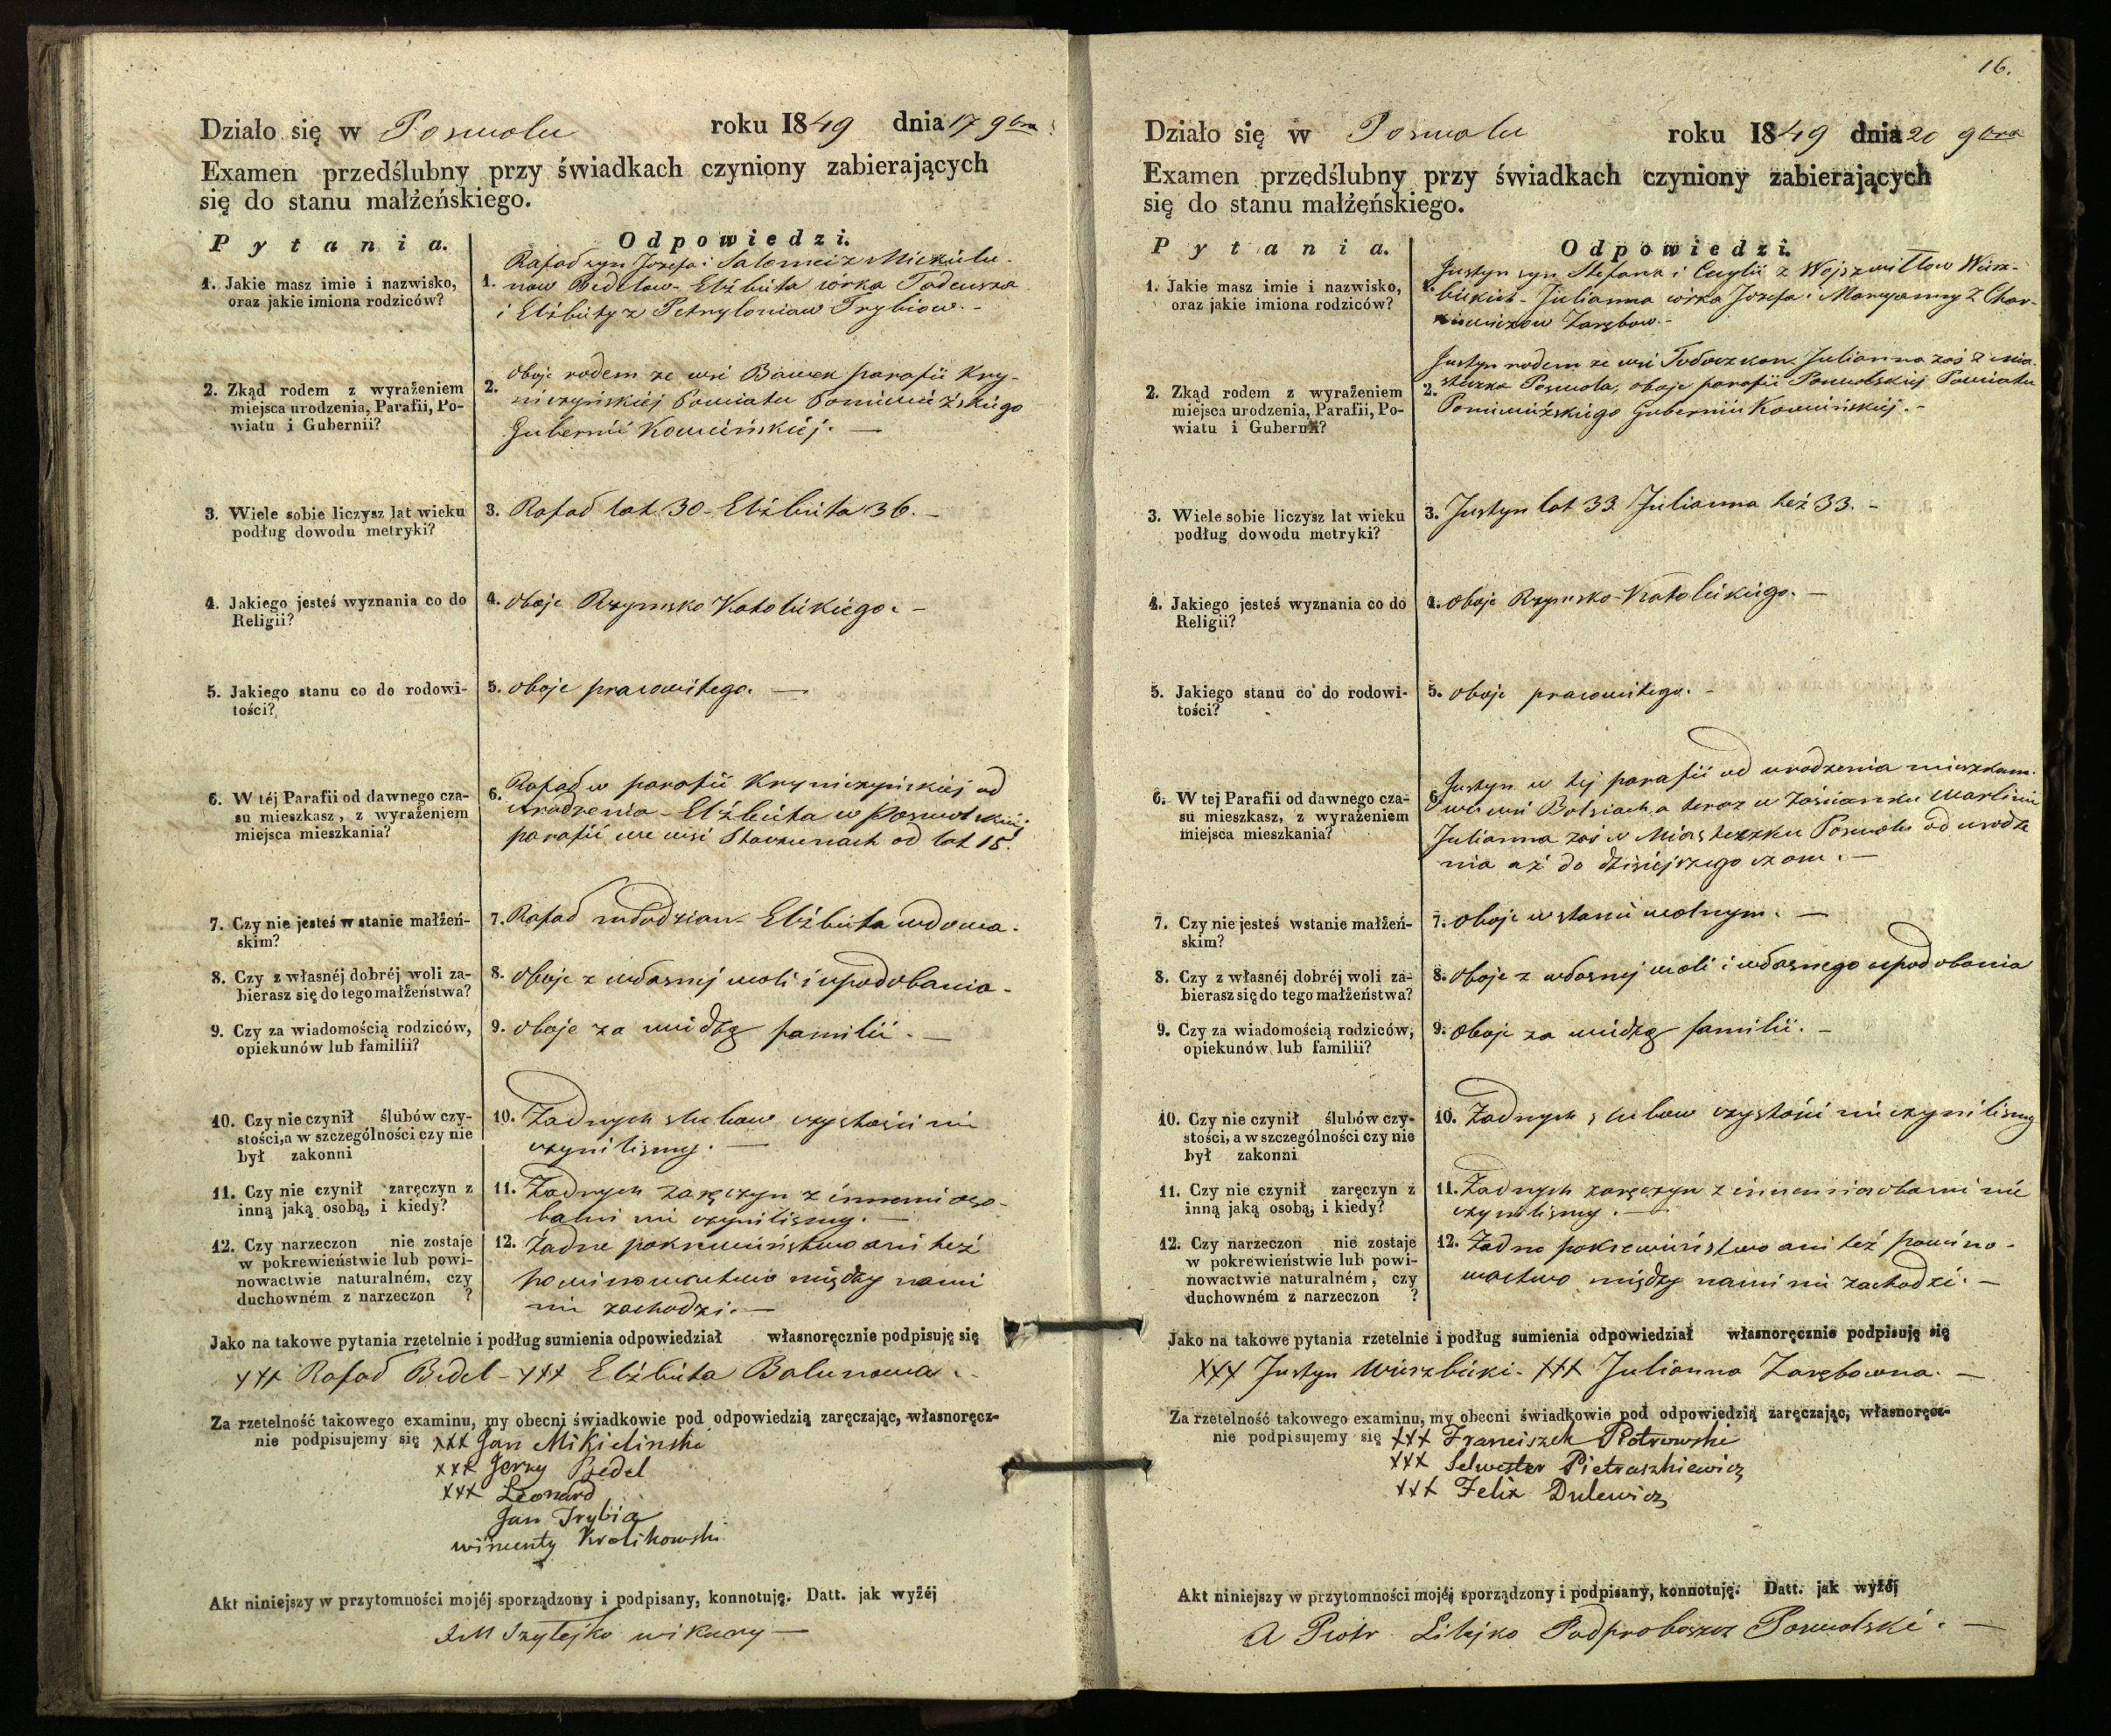 Działo się w Poswolu roku 1849 dnia 17 9bra
Examen przedślubny przy świadkach czyniony zabierających
się do stanu małżeńskiego.
Pytania. Odpowiedzi.
1. Jakie masz imie i nazwisko,
oraz jakie imiona rodziców?
1. Rafał syn Jozefa i Salomei z Mickielu-
now Bedelow - Elżbieta córka Tadeusza
i Elżbiety z Petryloniow Trybiow. -
2. Zkąd rodem z wyrażeniem
miejsca urodzenia, Parafii, Po-
wiatu i Gubernii?
2. Oboje rodem ze wsi parafii Kry-
niczyńskiej Powiatu Poniewieżskiego
Gubernii Kowieńskiéj. -
3. Wiele sobie liczysz lat wieku
podług dowodu metryki?
3. Rafał lat 30 - Elżbieta 36. -
4. Jakiego jesteś wyznania co do
Religii?
4. Oboje Rzymsko Katolickiego. -
5. Jakiego stanu co do rodowi-
tości?
5. Oboje pracowitego. -
6. W téj Parafii od dawnego cza-
su mieszkasz, z wyrażeniem
miejsca mieszkania?
6. Rafał w parafii Kryniczyńskiej od
urodzenia - Elżbieta w Poswolskiej
parafii we wsi od lat 15.
7. Czy nie jesteś w stanie małżeń-
skim?
7. Rafał młodzian - Elżbieta wdowa.
8. Czy z własnéj dobréj woli za-
bierasz się do tego małżeństwa?
8. Oboje z własnej woli i upodobania -
9. Czy za wiadomością rodziców,
opiekunów lub familii?
9. Oboje za wiedzą familii. -
10. Czy nie czynił ślubów czy-
stości, a w szczególności czy nie
był zakonni
10. Żadnych slubow czystosci nie
czynilismy. -
11. Czy nie czynił zaręczyn z
inną jaką osobą, i kiedy?
11. Żadnych zaręczyn z innemi oso-
bami nie czynilismy. -
12. Czy narzeczon nie zostaje
w pokrewieństwie lub powi-
nowactwie naturalném, czy
duchowném z narzeczon ?
12. Żadne pokrewieństwo ani też
powinowactwo między nami
nie zachodzi. -
Jako na takowe pytania rzetelnie i podług sumienia odpowiedział własnoręcznie podpisuję się
xxx Rafał Bedel - xxx Elżbieta Balunowa. -
Za rzetelność takowego examinu, my obecni świadkowie pod odpowiedzią zaręczając, własnoręcz-
nie podpisujemy się xxx Jan Mikielinski
xxx Jerzy Bedel
xxx Leonard
Jan Trybia
wincenty Krolikowski
Akt niniejszy w przytomności mojéj sporządzony i podpisany, konnotuję. Datt. jak wyżéj
Szylejko wikary -
16.
Działo się w Poswolu roku 1849 dnia 20 9bra
Examen przedślubny przy świadkach czyniony zabierających
się do stanu małżeńskiego.
Pytania. Odpowiedzi.
1. Jakie masz imie i nazwisko,
oraz jakie imiona rodziców?
1. Justyn syn Stefana i Cecylii z Wojszwiłłow Wierz-
bickich - Julianna córka Jozefa i Maryanny z
Zarębow. -
2. Zkąd rodem z wyrażeniem
miejsca urodzenia, Parafii, Po-
wiatu i Gubernii?
2. Justyn rodem ze wsi Julianna zaś z mia-
steczka Poswola, oboje parafii Poswolskiej Powiatu
Poniewieżskiego Gubernii Kowieńskiéj. -
3. Wiele sobie liczysz lat wieku
podług dowodu metryki?
3. Justyn lat 33 Julianna też 33. -
4. Jakiego jesteś wyznania co do
Religii?
4. Oboje Rzymsko-Katolickiego. -
5. Jakiego stanu co do rodowi-
tości?
5. Oboje pracowitego. -
6. W tej Parafii od dawnego cza-
su mieszkasz, z wyrażeniem
miejsca mieszkania?
6. Justyn w tej parafii od urodzenia mieszkam
we wsi a teraz w Zaścianku
Julianna zaś w Miasteczku Poswolu od urodze
nia aż do dzisiéjszego czasu. -
7. Czy nie jesteś wstanie małżeń-
skim?
7. Oboje w stanie wolnym. -
8. Czy z własnéj dobréj woli za-
bierasz się do tego małżeństwa?
8. Oboje z własnej woli i własnego upodobania
9. Czy za wiadomością rodziców,
opiekunów lub familii?
9. Oboje za wiedzą familii. -
10. Czy nie czynił ślubów czy-
stości, a w szczególności czy nie
był zakonni
10. Żadnych slubow czystości nie czynilismy
11. Czy nie czynił zaręczyn z
inną jaką osobą, i kiedy?
11. Żadnych zaręczyn z innemi osobami nie
czynilismy. -
12. Czy narzeczon nie zostaje
w pokrewieństwie lub powi-
nowactwie naturalném, czy
duchowném z narzeczon ?
12. Żadne pokrewieństwo ani też powino-
wactwo między nami nie zachodzi. -
Jako na takowe pytania rzetelnie i podług sumienia odpowiedział własnoręcznie podpisuję się
xxx Justyn Wierzbicki - xxx Julianna Zarębowna. -
Za rzetelność takowego examinu, my obecni świadkowie pod odpowiedzią zaręczając, własnoręcz-
nie podpisujemy się xxx Franciszek Piotrowski
xxx Selwester Pietraszkiewicz
xxx Felix Dulewicz
Akt niniejszy w przytomności mojéj sporządzony i podpisany, konnotuję. Datt. jak wyżéj
X Piotr Podproboszcz Poswolski. -